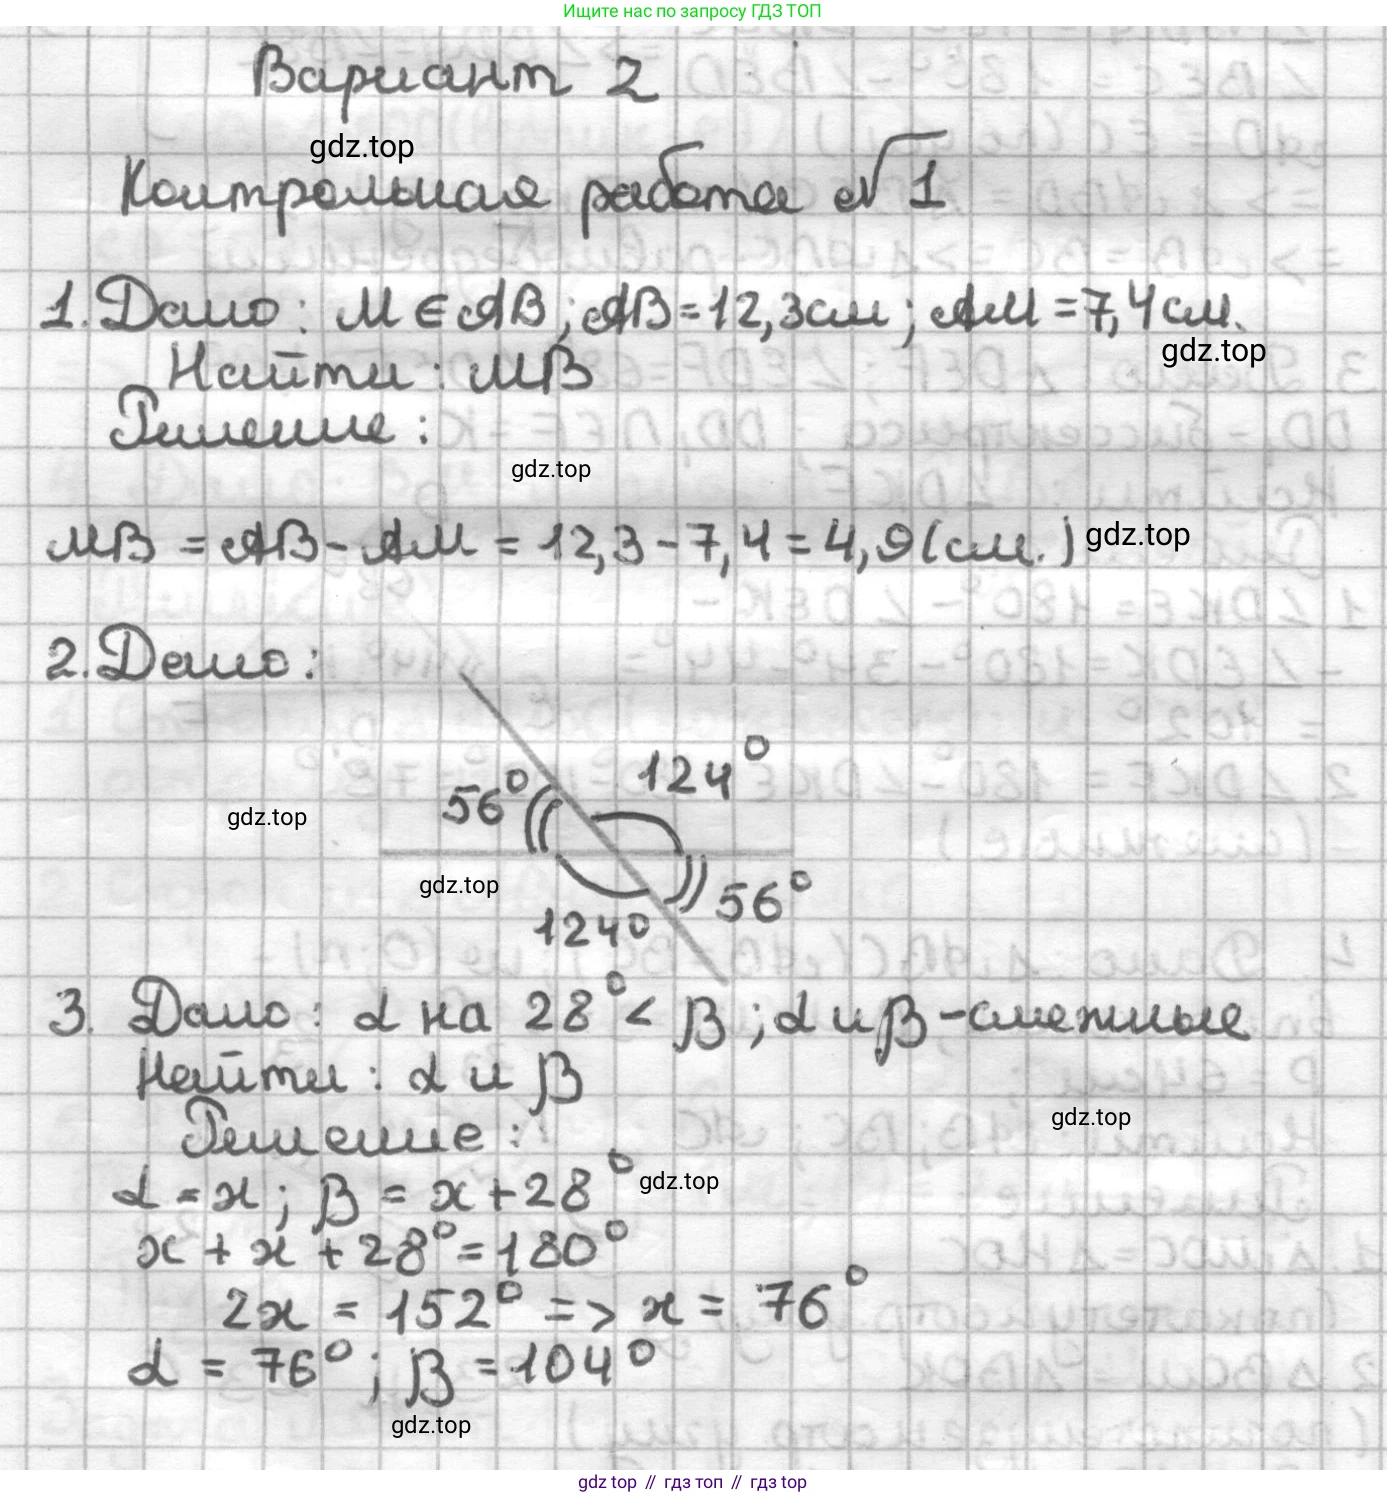 Ищите нас по запросу ГДЗ ТОП
Вариант 2
gdz.top
Контрольная работа №1
1. Дано: M ∈ AB; AB = 12,3 см; AM = 7,4 см.
gdz.top
Найти: MB
Решение:
gdz.top
MB = AB - AM = 12,3 - 7,4 = 4,9 (см.)
gdz.top
2. Дано:
124°
56°
gdz.top
gdz.top
56°
124°
3. Дано: α на 28° < β; α и β - смежные
Найти: α и β
gdz.top
Решение:
α = x; β = x + 28°
gdz.top
x + x + 28° = 180°
2x = 152° => x = 76°
α = 76°; β = 104°
gdz.top
gdz top // гдз топ // gdz top